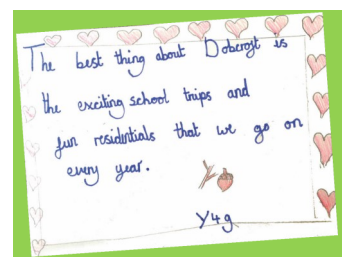 The best thing about Dobcroft is
the exciting school trips and
fun residentials that we go on
every year.
Y4g